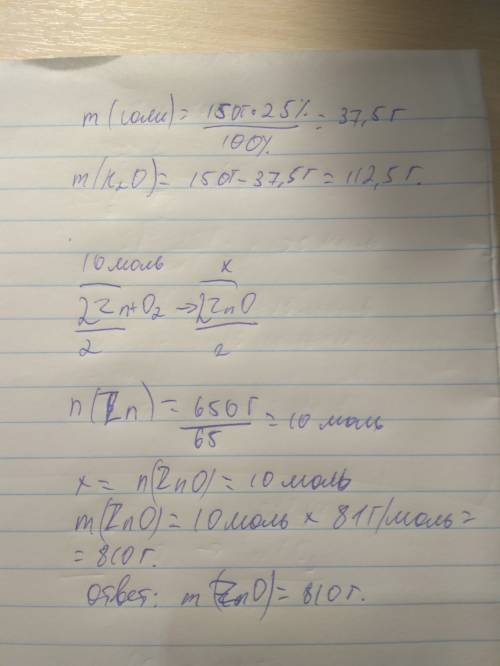 m(соли) = 150г · 25% / 100% = 37,5г
m(H₂O) = 150г - 37,5г = 112,5г.
10 моль x
2Zn + O₂ → 2ZnO
2 2
n(Zn) = 650г / 65 = 10 моль
x = n(ZnO) = 10 моль
m(ZnO) = 10 моль × 81г/моль =
= 810г.
ответ: m(ZnO) = 810г.